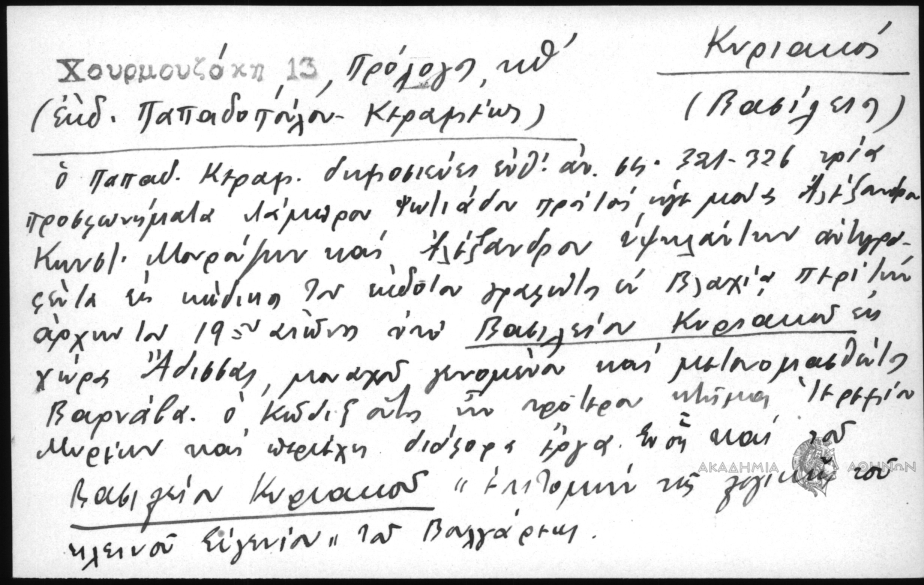 Χουρμουζάκη 13, Πρόλογος, κθ΄
Κυριακός
(ἐκδ. Παπαδοπούλου-Κεραμέως)
(Βασίλειος)
ὁ Παπαδ. Κεραμ. δημοσιεύει ἐνθ' ἀν. σς. 321-326 τρία
προσφωνήματα Λάμπρου Φωτιάδου πρὸς τοὺς ἡγεμόνας Ἀλέξανδρον
Κωνστ. Μουρούζην καὶ Ἀλέξανδρον Ὑψηλάντην ἀντιγρα-
φέντα εἰς κώδικα τοῦ ἐκδότου γραφέντα ἐν Βλαχίᾳ περὶ τὴν
ἀρχὴν τοῦ 19ου αἰῶνος ὑπὸ Βασιλείου Κυριακοῦ ἐκ
χώρας Ἀδισσας, μοναχοῦ γενομένου καὶ μετονομασθέντος
Βαρνάβα. ὁ κῶδιξ οὗτος ἦν πρότερον κτῆμα Ἱερεμίου
καὶ περιέχει διάφορα ἔργα. Ἐν οἷς καὶ τοῦ
Βασιλείου Κυριακοῦ "Ἐπιτομὴν τῆς λογικῆς τοῦ
κλεινοῦ Εὐγενίου" τοῦ Βουλγάρεως.
ΑΚΑΔΗΜΙΑ ΑΘΗΝΩΝ